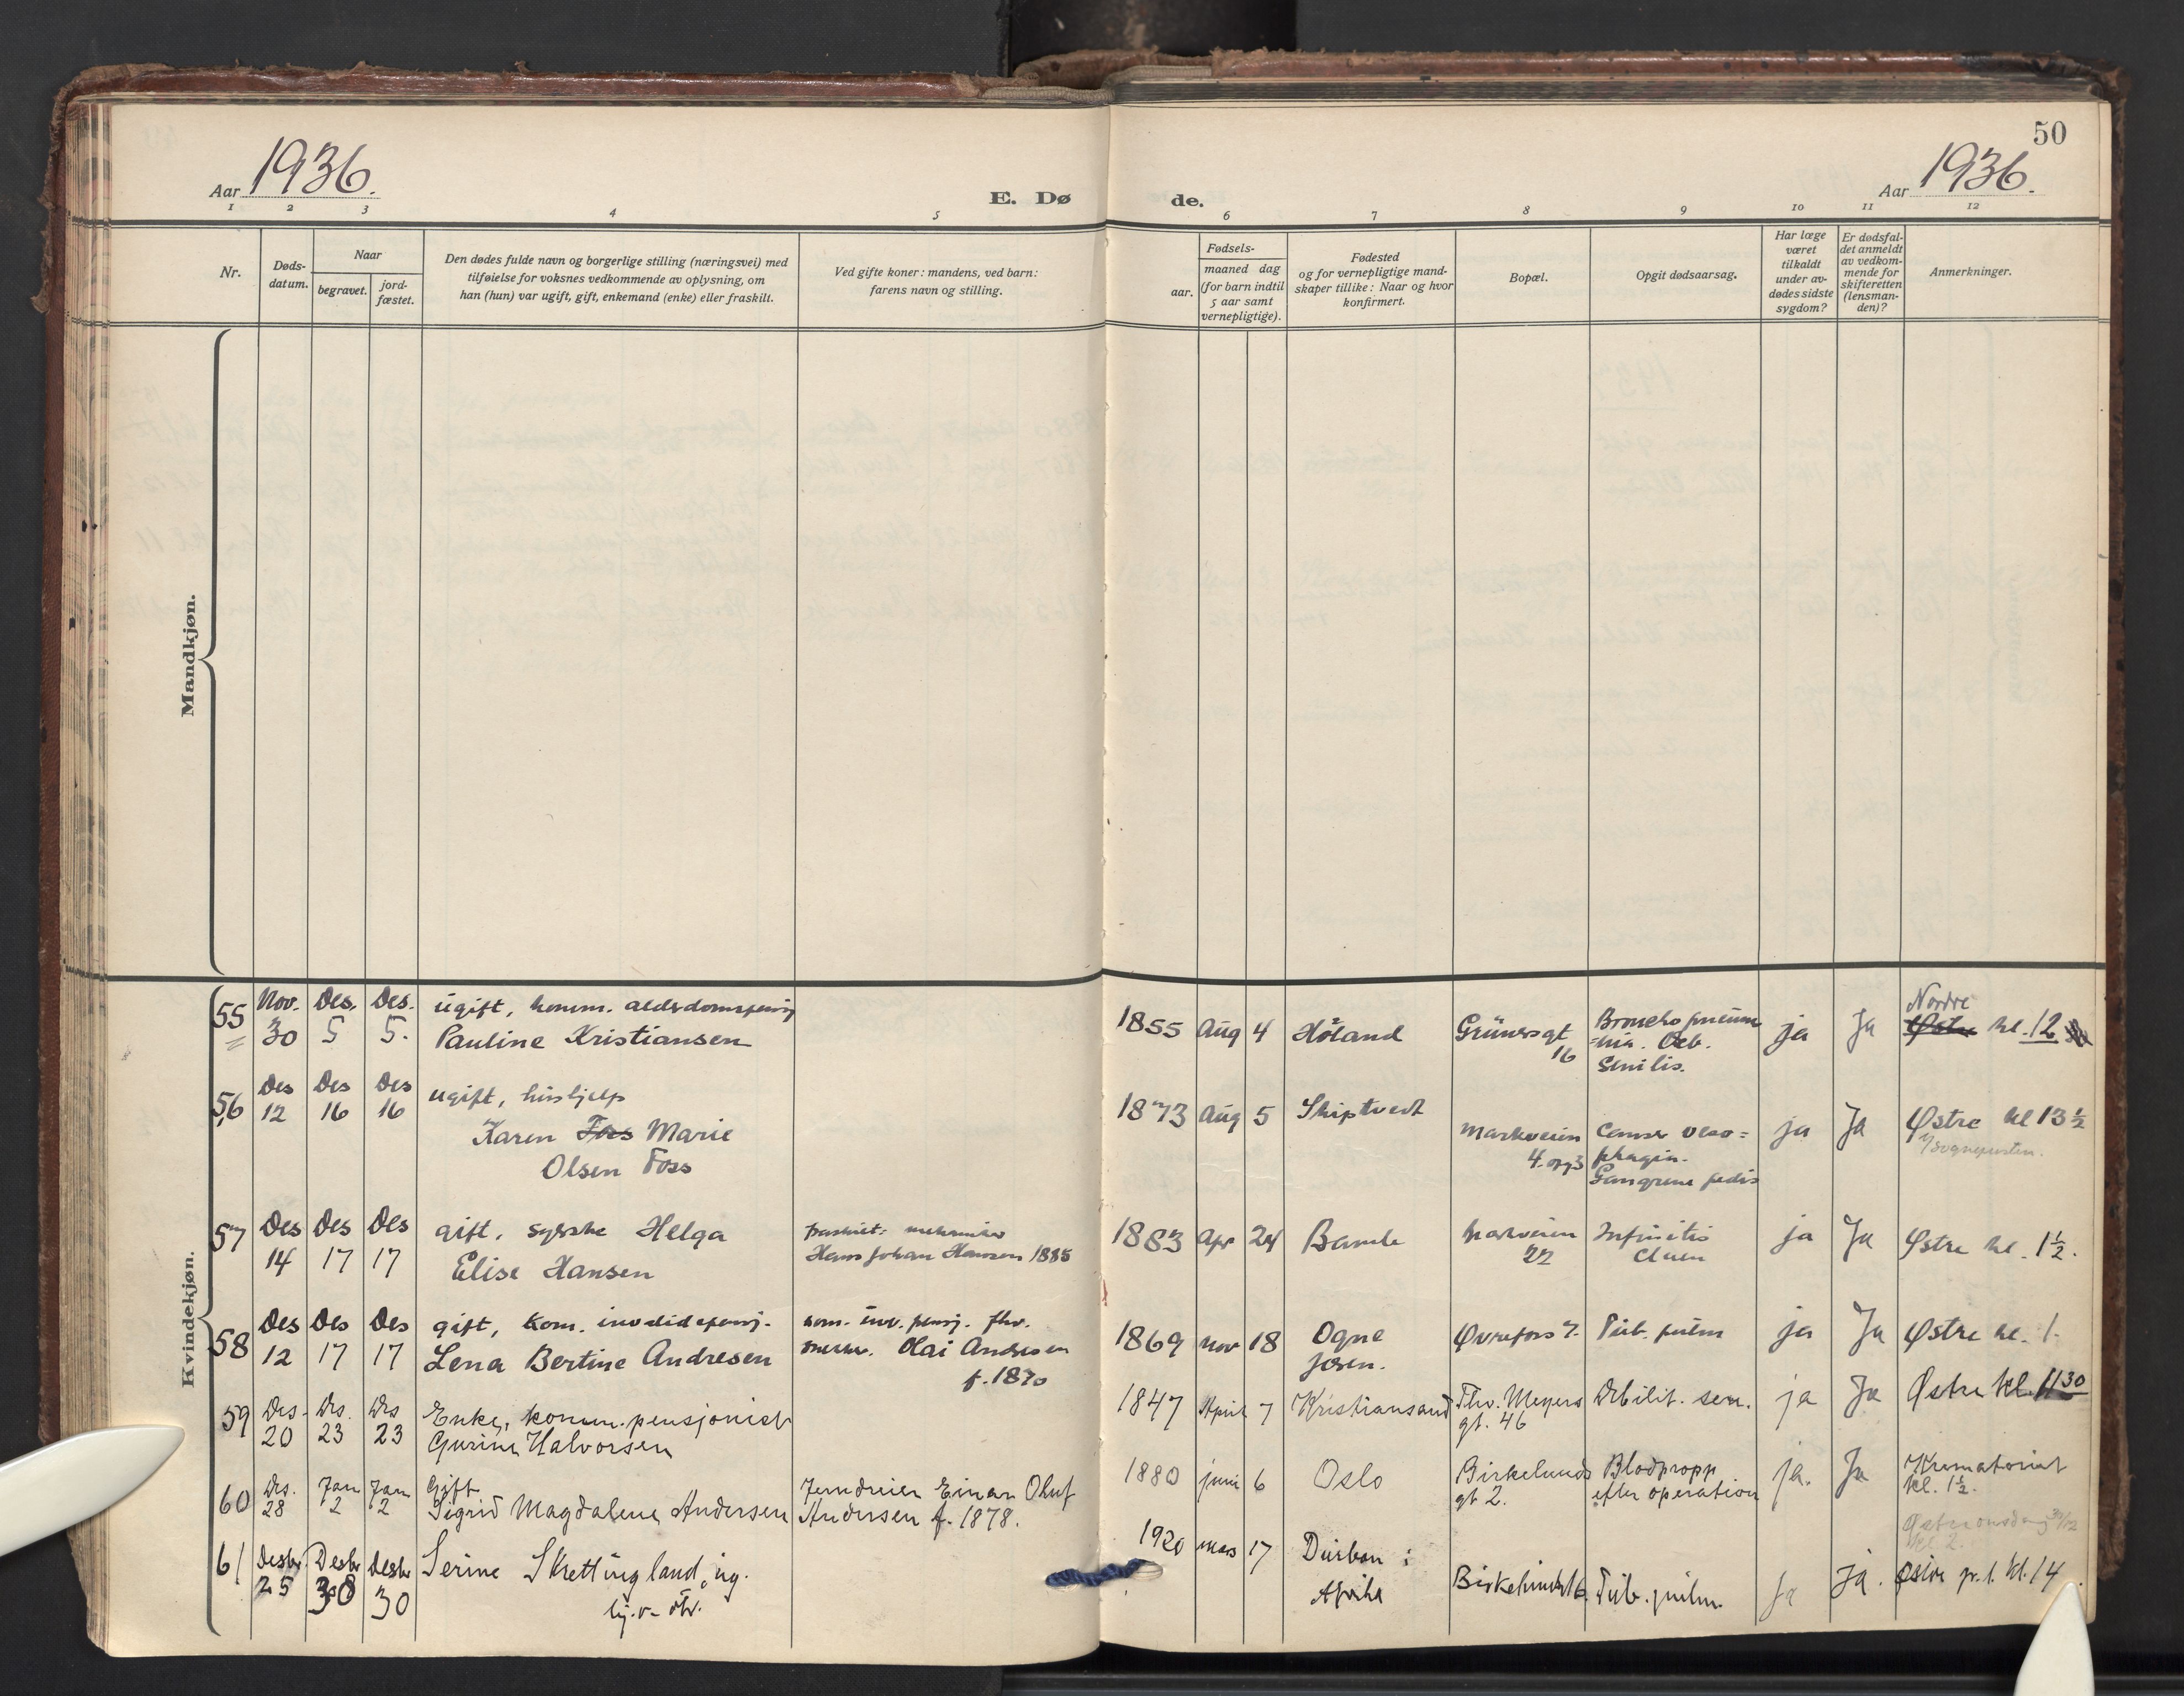 50
Aar 1936.
E. Dø
de.
Aar 1936.
1 2 3 4 5 6 7 8 9 10 11 12
Nr.
Døds-
datum.
Naar
begravet.
jord-
fæstet.
Den dødes fulde navn og borgerlige stilling (næringsvei) med
tilføielse for voksnes vedkommende av oplysning, om
han (hun) var ugift, gift, enkemand (enke) eller fraskilt.
Ved gifte koner: mandens, ved barn:
farens navn og stilling.
Fødsels-
aar.
maaned dag
(for barn indtil
5 aar samt
vernepligtige).
Fødested
og for vernepligtige mand-
skaper tillike: Naar og hvor
konfirmert.
Bopæl.
Opgit dødsaarsag.
Har læge
været
tilkaldt
under av-
dødes sidste
sygdom?
Er dødsfal-
det anmeldt
av vedkom-
mende for
skifteretten
(lensman-
den)?
Anmerkninger.
Mandkjøn.
Kvindekjøn.
55
Nov. 30
Des. 5
Des. 5.
ugift, komm. alderdomspensj
Pauline Kristiansen
1855 Aug 4
Høland
Grünersgt
16
Broncho pneum
=nia. Deb.
Senilis.
ja
Ja
Nordre
Østre kl. 12
56
Des 12
Des 16
Des 16
ugift, hushjelp
Karen Foss Marie
Olsen Foss
1873 Aug 5
Skiptvedt
Markveien
4. opg3
Cancer oeso=
phagin.
Gangrene pedis
ja
Ja
Østre kl 13 1/2
57
Des 14
Des 17
Des 17
gift, syerske Helga
Elise Hansen
fraskilt: mekaniker
Hans Johan Hansen 1885
1883 Apr 24
Bamle
Markveien
22
ja
Ja
Østre kl. 1 1/2.
58
Des 12
Des 17
Des 17
gift, kom. invalidepensj.
Lena Bertine Andresen
kom. inv. pensj. fhv.
Olai Andresen
f. 1870
1869 nov 18
Ogne
Jæren.
Øvrefoss 7.
Tub. pulm
ja
Ja
Østre kl. 1.
59
Des. 20
Des. 23
Des 23
Enke, komm. pensjonist
Gurine Halvorsen
1847 April 7
Kristiansand
Thv. Meyers
gt. 46
Debilit. sen.
ja
Ja
Østre kl. 11 30
60
Des. 28
Jan 2
Jan 2
Gift
Sigrid Magdalene Andersen
Jerndreier Einar Oluf
Andersen f. 1878.
1880 juni 6
Oslo
Birkelunds
gt 2.
Blodpropp
efter operation
ja.
Ja
Krematoriet
kl. 1 1/2.
Østre onsdag 30/12
kl 2.
61
Desbr 25
Desbr 30
Desbr 30
Serine Skrettingland, ug.
1920 mars 17
Durban i
Afrika
Tub. pulm.
Ja
Ja.
kl. 14